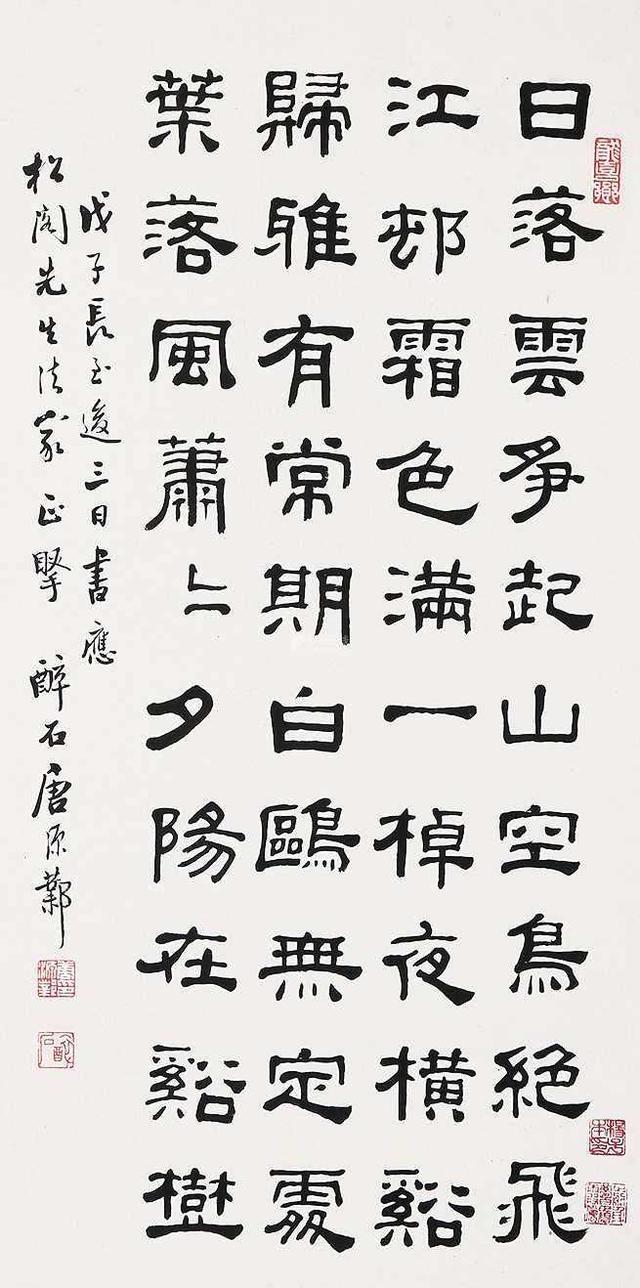 日落雲爭起山空鳥絕飛
江邨霜色滿一棹夜橫谿
歸雅有常期白鷗無定處
葉落風蕭〻夕陽在谿樹
戊子長至後三日書應
松閣先生法家正 醉石唐源鄴